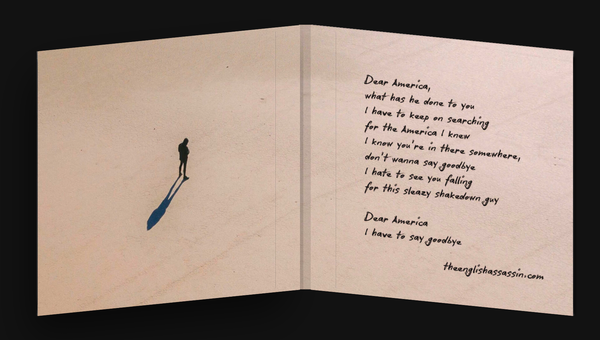 Dear America,
what has he done to you
I have to keep on searching
for the America I knew
I know you're in there somewhere,
don't wanna say goodbye
I hate to see you falling
for this sleazy shakedown guy
Dear America
I have to say goodbye
theenglishassassin.com